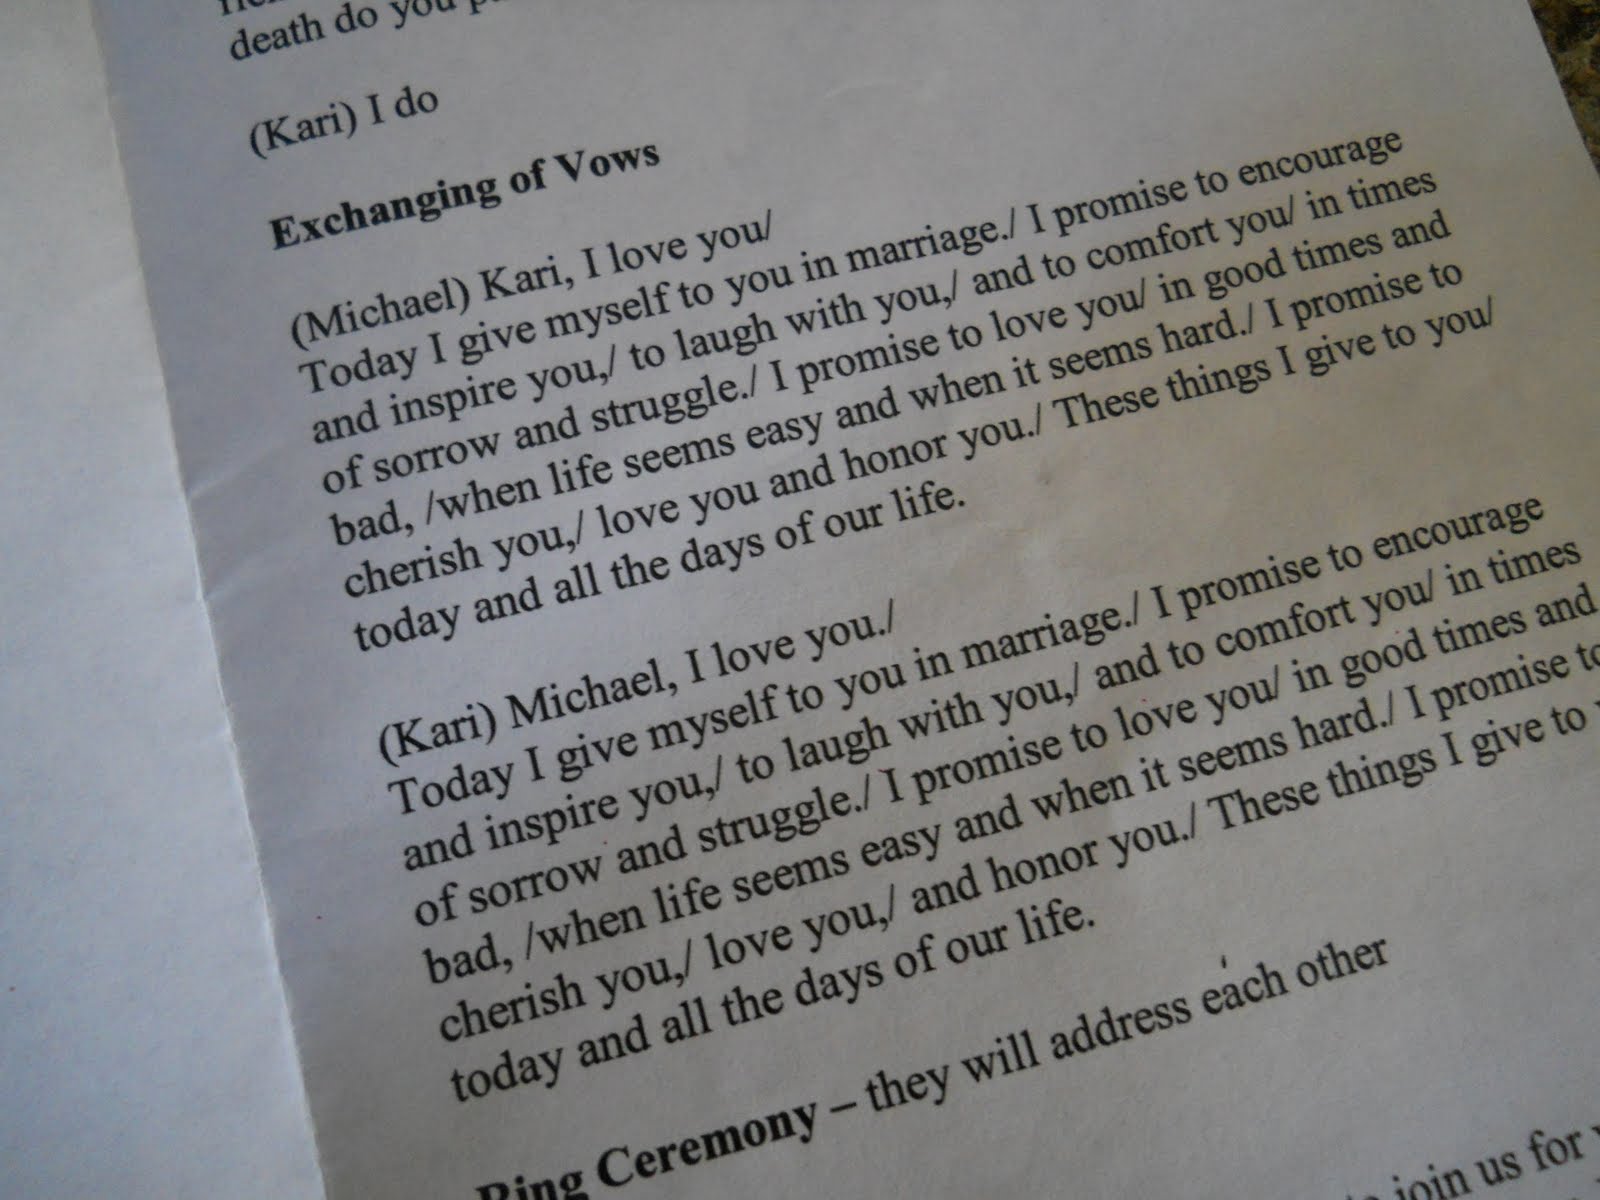 death do you
(Kari) I do
Exchanging of Vows
(Michael) Kari, I love you/
Today I give myself to you in marriage./ I promise to encourage
and inspire you,/ to laugh with you,/ and to comfort you/ in times
of sorrow and struggle./ I promise to love you/ in good times and
bad, /when life seems easy and when it seems hard./ I promise to
cherish you,/ love you and honor you./ These things I give to you/
today and all the days of our life.
(Kari) Michael, I love you./
Today I give myself to you in marriage./ I promise to encourage
and inspire you,/ to laugh with you,/ and to comfort you/ in times
of sorrow and struggle./ I promise to love you/ in good times and
bad, /when life seems easy and when it seems hard./ I promise to
cherish you,/ love you,/ and honor you./ These things I give to
today and all the days of our life.
Ring Ceremony – they will address each other
join us for